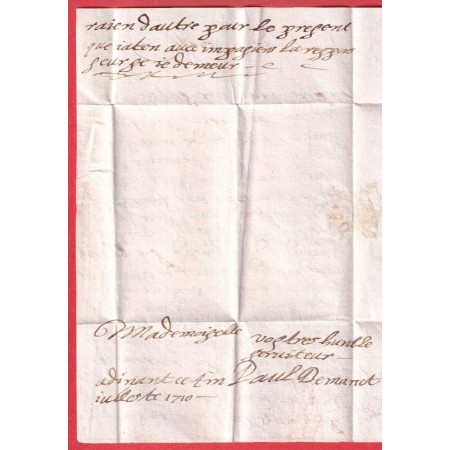 raien dautre pour le present
que iaten avec impasiens la respon
seur se ie demeur
Mademoiselle
vostres humble
seruiteur
a dinant ce 4m Paul Demanet
iulleste 1710